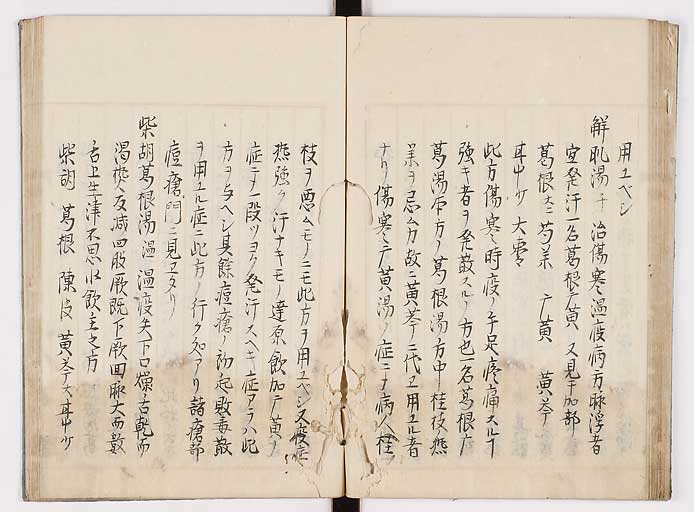 用ユベシ
解肌湯 千 治傷寒温疫病方脉浮者
宜発汗一名葛根广黄 又見于加部
葛根大 芍薬 广黄 黄芩
甘中少 大棗
此方傷寒時疫ノ手足疼痛スルヿ
強キ者ヲ発散スルノ方也一名葛根广
葛湯 方ノ葛根湯方中桂枝熬
薬ヲ忌ム力故ニ黄芩ニ代エ用ユル者
ナリ傷寒ニテ广黄湯ノ症ニテ病人桂
枝ヲ悪ムモノニモ此方ヲ用ユベシ又疫症
熱強ク汗ナキモノ達原飲加广黄ノ
症ニテ一段ツヨク発汗スヘキ症アラハ此
方ヲ与ヘシ其餘痘瘡ノ初起敗毒散
ヲ用ユル症ニ此方ノ行ク処アリ諸瘡部
痘瘡門ニ見エタリ
柴胡葛根湯 温 温疫失下口燥舌乾而
渇 人反减四肢厥既下厥回脉大而數
舌上生津不思水飲主之方
柴胡 葛根 陳皮 黄芩大 甘中少